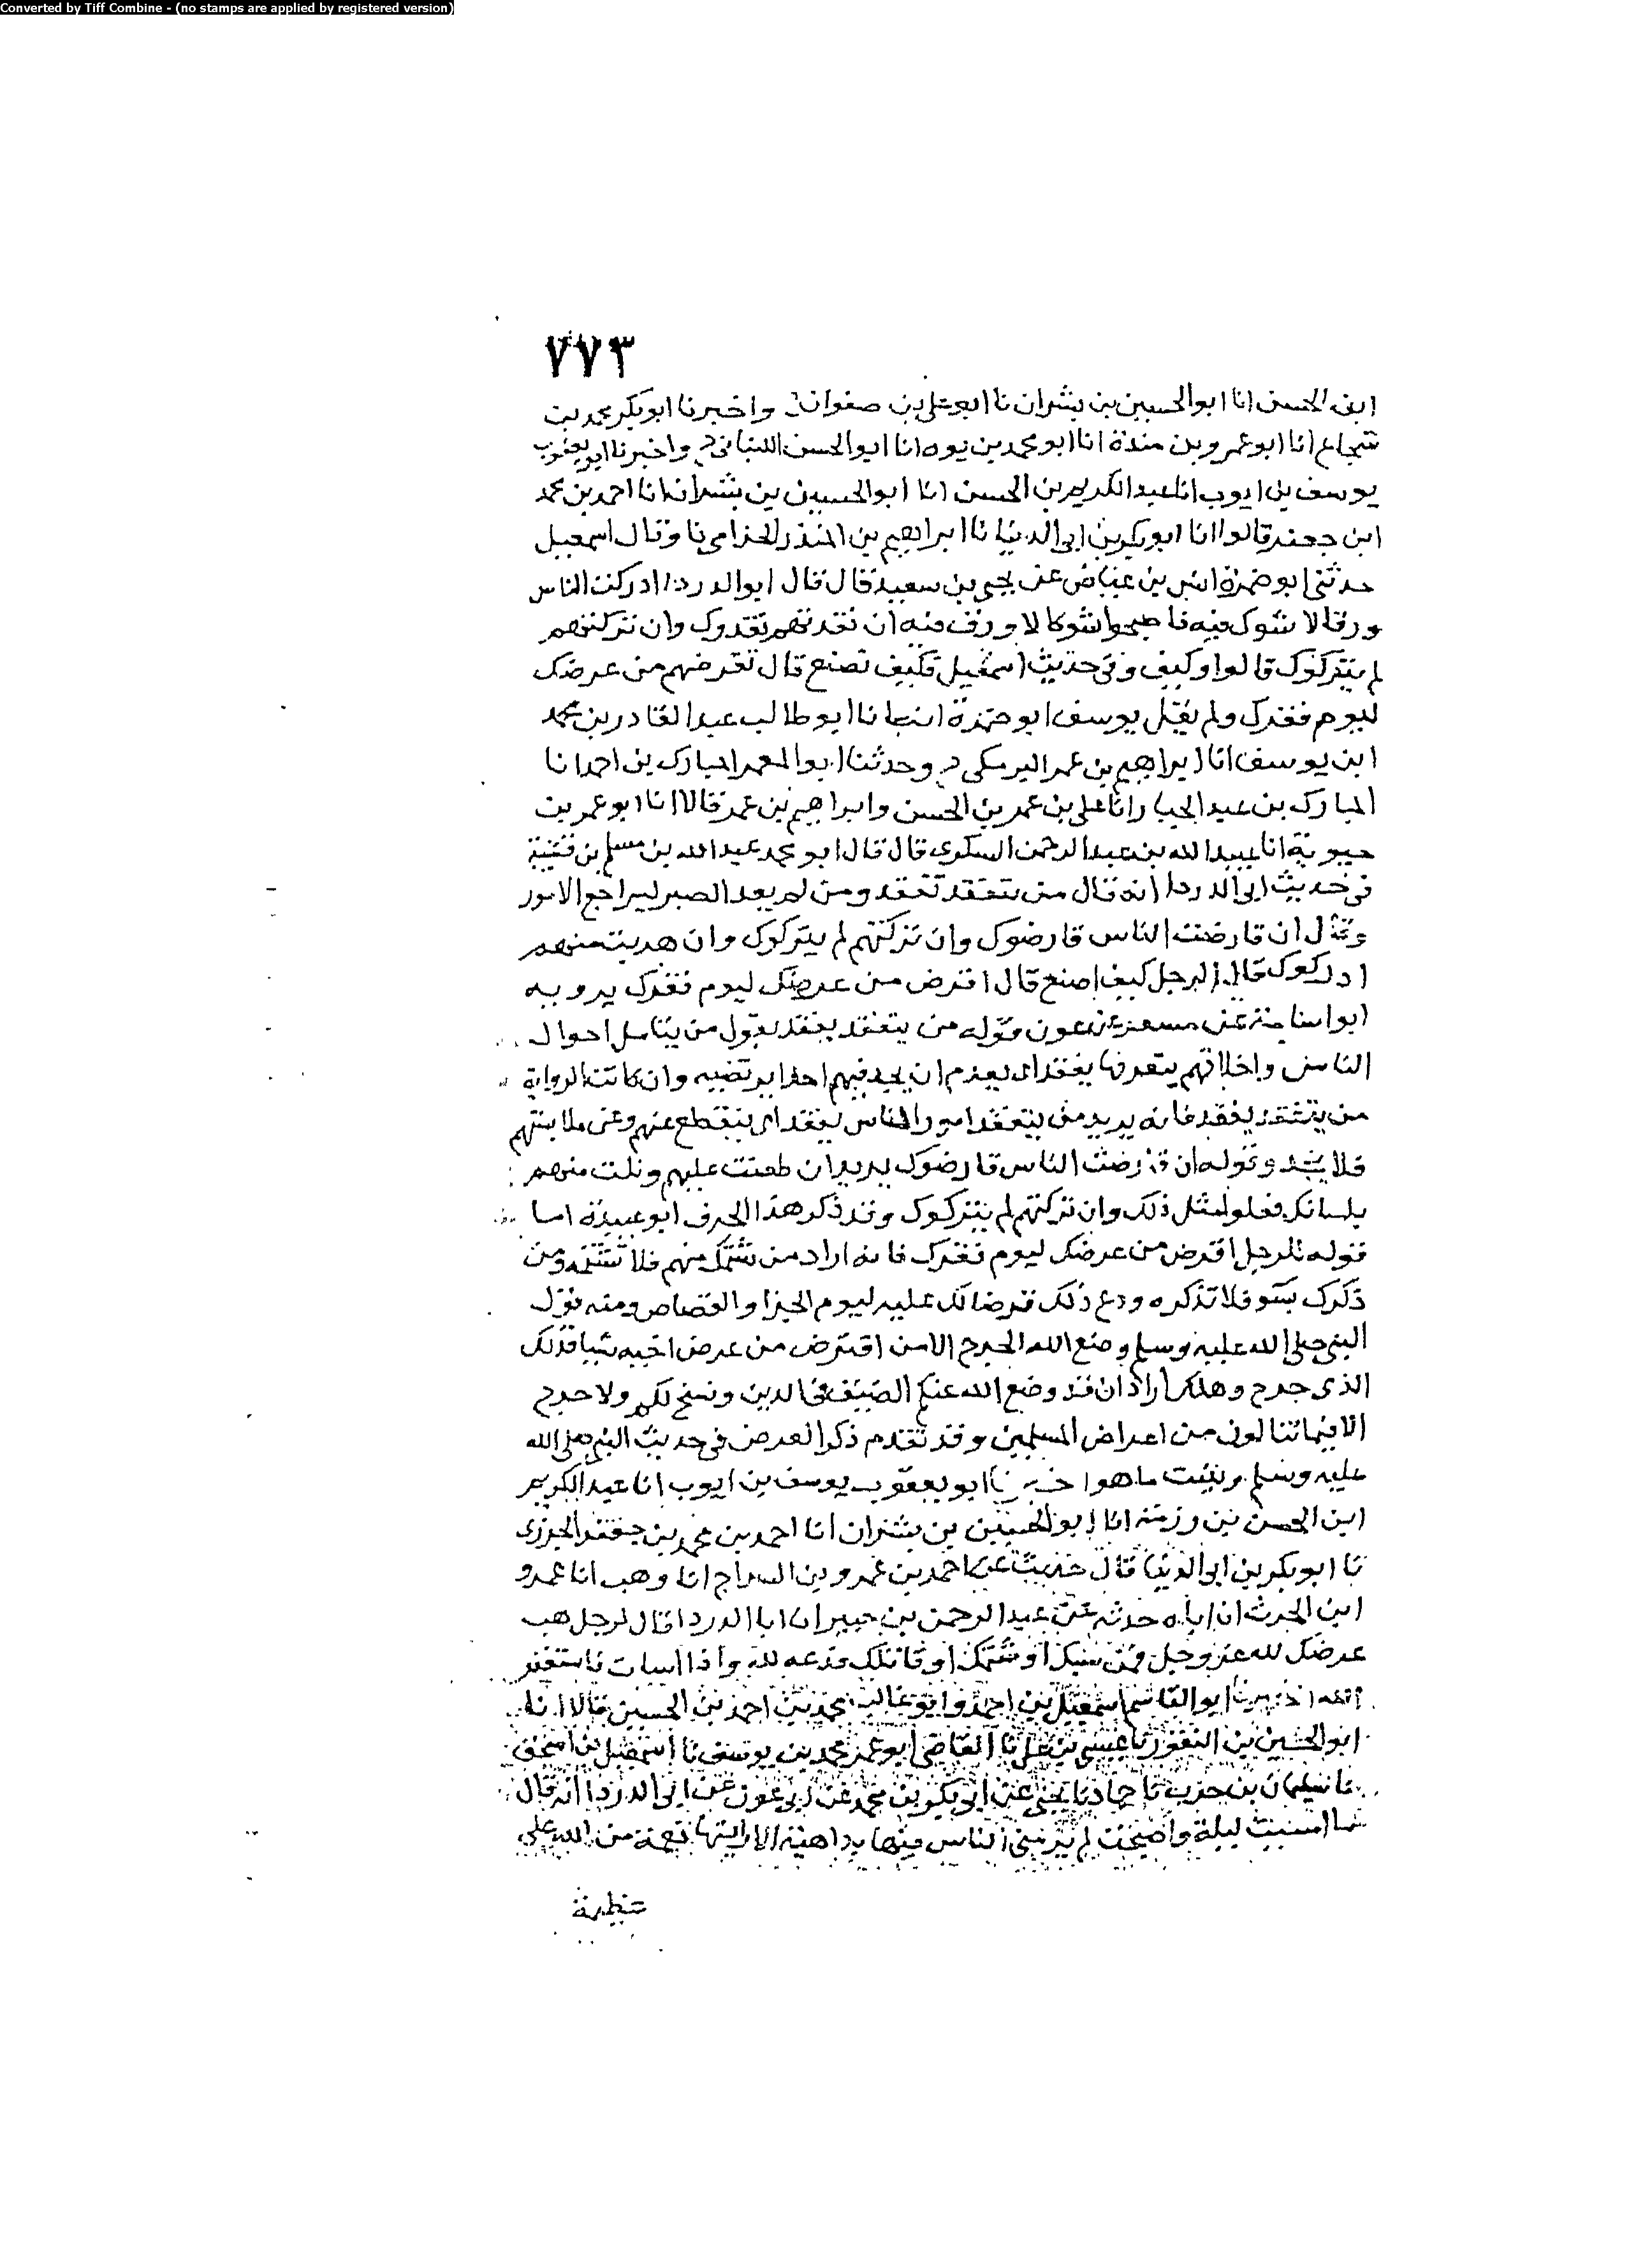 Converted by Tiff Combine - (no stamps are applied by registered version)
٧٧٣
ابن الحسن انا ابو الحسين بن بشران نا ابو علي بن صفوان واخبرنا ابو بكر محمد بن
شجاع انا ابو عمرو بن مندة انا ابو محمد بن يوه انا ابو الحسن اللنباني ح واخبرنا ابو يعقوب
يوسف بن ايوب انا عبد الكريم بن الحسن انا ابو الحسين بن بشران انا احمد بن محمد
ابن جعفر قالوا انا ابو بكر بن ابي الدنيا نا ابراهيم بن المنذر الحزامي نا وقال اسمعيل
حدثني ابو ضمرة انس بن عياض عن يحيى بن سعيد قال قال ابو الدردا ادركت الناس
ورقا لا شوك فيه فاصبحوا شوكا لا ورق فيه ان نقدتهم نقدوك وان تركتهم
لم يتركوك قالوا وكيف وفي حديث اسمعيل فكيف نصنع قال تقرضهم من عرضك
ليوم فقرك ولم يقل يوسف ابو ضمرة انبانا ابو طالب عبد القادر بن محمد
ابن يوسف انا ابراهيم بن عمر البرمكي ح وحدثنا ابو المعمر المبارك بن احمد انا
المبارك بن عبد الجبار انا علي بن عمر بن الحسن وابراهيم بن عمر قالا انا ابو عمر بن
حيوية انا عبيد الله بن عبد الرحمن السكري قال قال ابو محمد عبد الله بن مسلم بن قتيبة
في حديث ابي الدردا انه قال من يتفقد تفقد ومن لم يعد الصبر الامور
وقال ان قارضت الناس قارضوك وان تركتهم لم يتركوك وان هربت منهم
ادركوك قال الرجل كيف اصنع قال اقرض من عرضك ليوم فقرك يرويه
ابو اسامة عن مسعر عن عون وقوله من يتفقد يفقد يقول من يتامل احوال
الناس واخلاقهم يتعرفها يفقد اي يعدم ان يجد فيهم احدا يرتضيه وان كانت الرواية
من يتفقد يفقد فانه يريد من يتفقد امور الناس يفقد اي ينقطع عنهم وعن ملابستهم
فلا وقوله ان قارضت الناس قارضوك يريد ان طعنت عليهم ونلت منهم
بلسانك فعلوا مثل ذلك وان تركتهم لم يتركوك وقد ذكر هذا الحرف ابو عبيدة اما
قوله للرجل اقرض من عرضك ليوم فقرك فانه اراد من شتمك منهم فلا تشتمه ومن
ذكرك بسو فلا تذكره ودع ذلك قرضا لك عليه ليوم الجزا والقصاص ومنه قول
النبي صلى الله عليه وسلم وضع الله الحرج الا من اقترض من عرض اخيه شيا فذلك
الذي حرج وهلك اراد ان قد وضع الله عنكم الضيق في الدين وفسح لكم ولا حرج
الا فيما تنالون من اعراض المسلمين وقد تقدم ذكر العرض في حديث النبي صلى الله
عليه وسلم وبينت ما هو اخبرنا ابو يعقوب يوسف بن ايوب انا عبد الكريم
ابن الحسن بن رزمة انا ابو الحسين بن بشران انا احمد بن محمد بن جعفر الجوزي
نا ابو بكر بن ابي الدنيا قال حديث عن احمد بن عمرو بن السراج انا وهب انا عمرو
ابن الحرث ان اباه حدثه عن عبد الرحمن بن جبير ان ابا الدردا قال لرجل هب
عرضك لله عز وجل فمن سبك او شتمك او قاتلك فدعه لله واذا اسات فاستغفر
الله اخبرنا ابو القاسم اسمعيل بن احمد وابو غالب محمد بن احمد بن الحسين قالا انا
ابو الحسين بن النقور نا عيسى بن علي نا القاضي ابو عمر محمد بن يوسف نا اسمعيل بن اسحق
نا سليمان بن حرب نا حماد نا يحيى عن ابي بكر بن محمد عن ابي عون عن ابي الدردا انه قال
ما امسيت ليلة واصبحت لم يرمني الناس فيها بداهية الا رايتها نعمة من الله علي
عظيمة